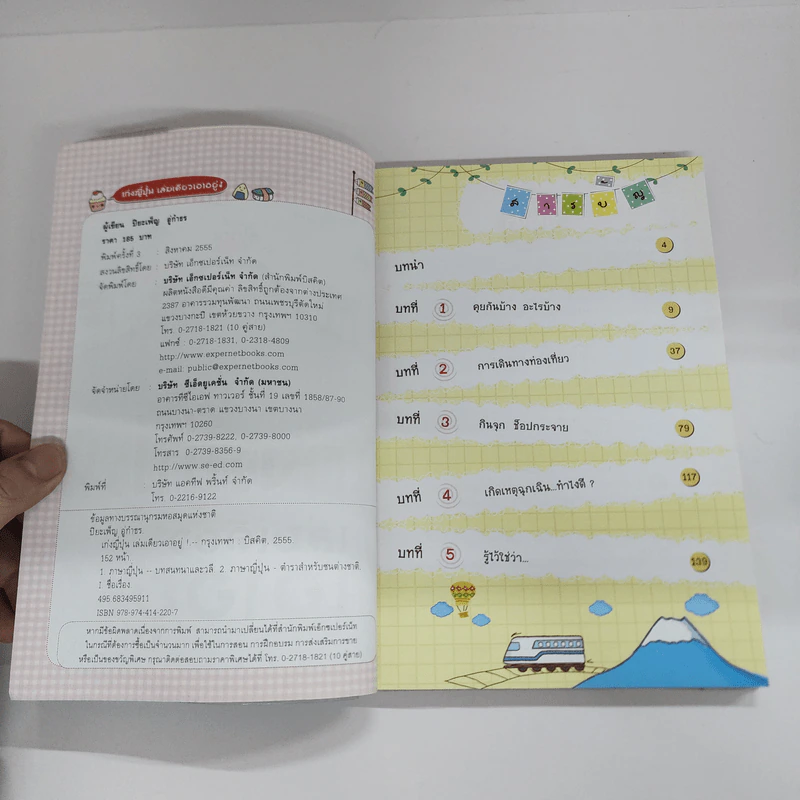 เก่งญี่ปุ่น เล่มเดียวเอาอยู่!
ผู้เขียน ปิยะเพ็ญ อู่กำธร
ราคา 185 บาท
พิมพ์ครั้งที่ 3 : สิงหาคม 2555
สงวนลิขสิทธิ์โดย : บริษัท เอ็กซเปอร์เน็ท จำกัด
จัดพิมพ์โดย : บริษัท เอ็กซเปอร์เน็ท จำกัด (สำนักพิมพ์บิสคิต)
ผลิตหนังสือดีมีคุณค่า ลิขสิทธิ์ถูกต้องจากต่างประเทศ
2387 อาคารรวมทุนพัฒนา ถนนเพชรบุรีตัดใหม่
แขวงบางกะปิ เขตห้วยขวาง กรุงเทพฯ 10310
โทร. 0-2718-1821 (10 คู่สาย)
แฟกซ์ : 0-2718-1831, 0-2318-4809
http://www.expernetbooks.com
e-mail: public@expernetbooks.com
จัดจำหน่ายโดย : บริษัท ซีเอ็ดยูเคชั่น จำกัด (มหาชน)
อาคารทีซีไอเอฟ ทาวเวอร์ ชั้นที่ 19 เลขที่ 1858/87-90
ถนนบางนา-ตราด แขวงบางนา เขตบางนา
กรุงเทพฯ 10260
โทรศัพท์ 0-2739-8222, 0-2739-8000
โทรสาร 0-2739-8356-9
http://www.se-ed.com
พิมพ์ที่ : บริษัท แอคทีฟ พริ้นท์ จำกัด
โทร. 0-2216-9122
ข้อมูลทางบรรณานุกรมหอสมุดแห่งชาติ
ปิยะเพ็ญ อู่กำธร
เก่งญี่ปุ่น เล่มเดียวเอาอยู่ !.-- กรุงเทพฯ : บิสคิต, 2555
152 หน้า
1. ภาษาญี่ปุ่น -- บทสนทนาและวลี 2. ภาษาญี่ปุ่น - ตำราสำหรับชนต่างชาติ.
I. ชื่อเรื่อง
495.683495911
ISBN 978-974-414-220-7
หากมีข้อผิดพลาดเนื่องจากการพิมพ์ สามารถนำมาเปลี่ยนได้ที่สำนักพิมพ์เอ็กซเปอร์เน็ท
ในกรณีที่ต้องการซื้อเป็นจำนวนมาก เพื่อใช้ในการสอน การฝึกอบรม การส่งเสริมการขาย
หรือเป็นของขวัญพิเศษ กรุณาติดต่อสอบถามราคาพิเศษได้ที่ โทร. 0-2718-1821 (10 คู่สาย)
สารบัญ
บทนำ 4
บทที่ 1 คุยกันบ้าง อะไรบ้าง 9
บทที่ 2 การเดินทางท่องเที่ยว 37
บทที่ 3 กินจุก ช็อปกระจาย 79
บทที่ 4 เกิดเหตุฉุกเฉิน...ทำไงดี ? 117
บทที่ 5 รู้ไว้ใช่ว่า... 139